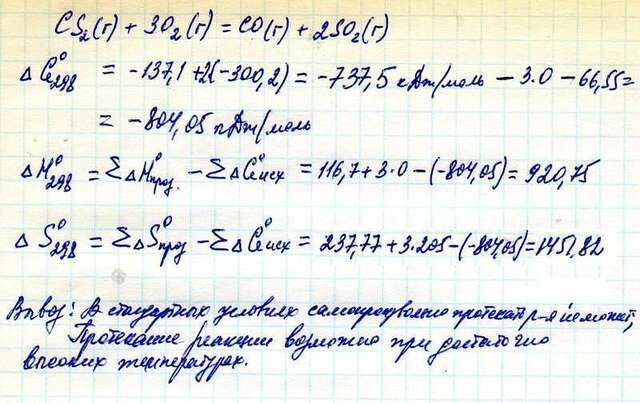 CS₂(г) + 3O₂(г) = CO(г) + 2SO₂(г)
Δ G°₂₉₈ = -137,1 + 2(-300,2) = -737,5 кДж/моль - 3·0 - 66,55 =
= -804,05 кДж/моль
Δ H°₂₉₈ = ΣΔH°прод. - ΣΔG°исх = 116,7 + 3·0 - (-804,05) = 920,75
Δ S°₂₉₈ = ΣΔS°прод - ΣΔG°исх = 237,77 + 3·205 - (-804,05) = 1451,82
Вывод: В стандартных условиях самопроизвольно протекать р-я не может,
Протекание реакции возможно при достаточно
высоких температурах.